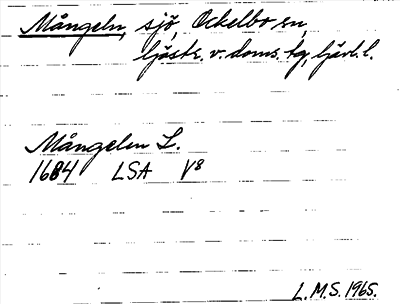 Mångeln, sjö, Ockelbo sn,
Gästr. v. doms. tg, Gävl. l.
Mångeln L.
1684 LSA V8
L.M.S. 1965.